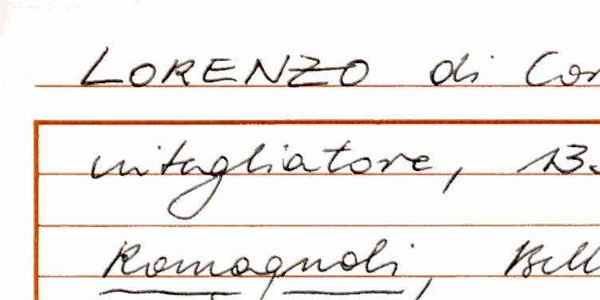 LORENZO di
intagliatore, 13
Romagnoli,